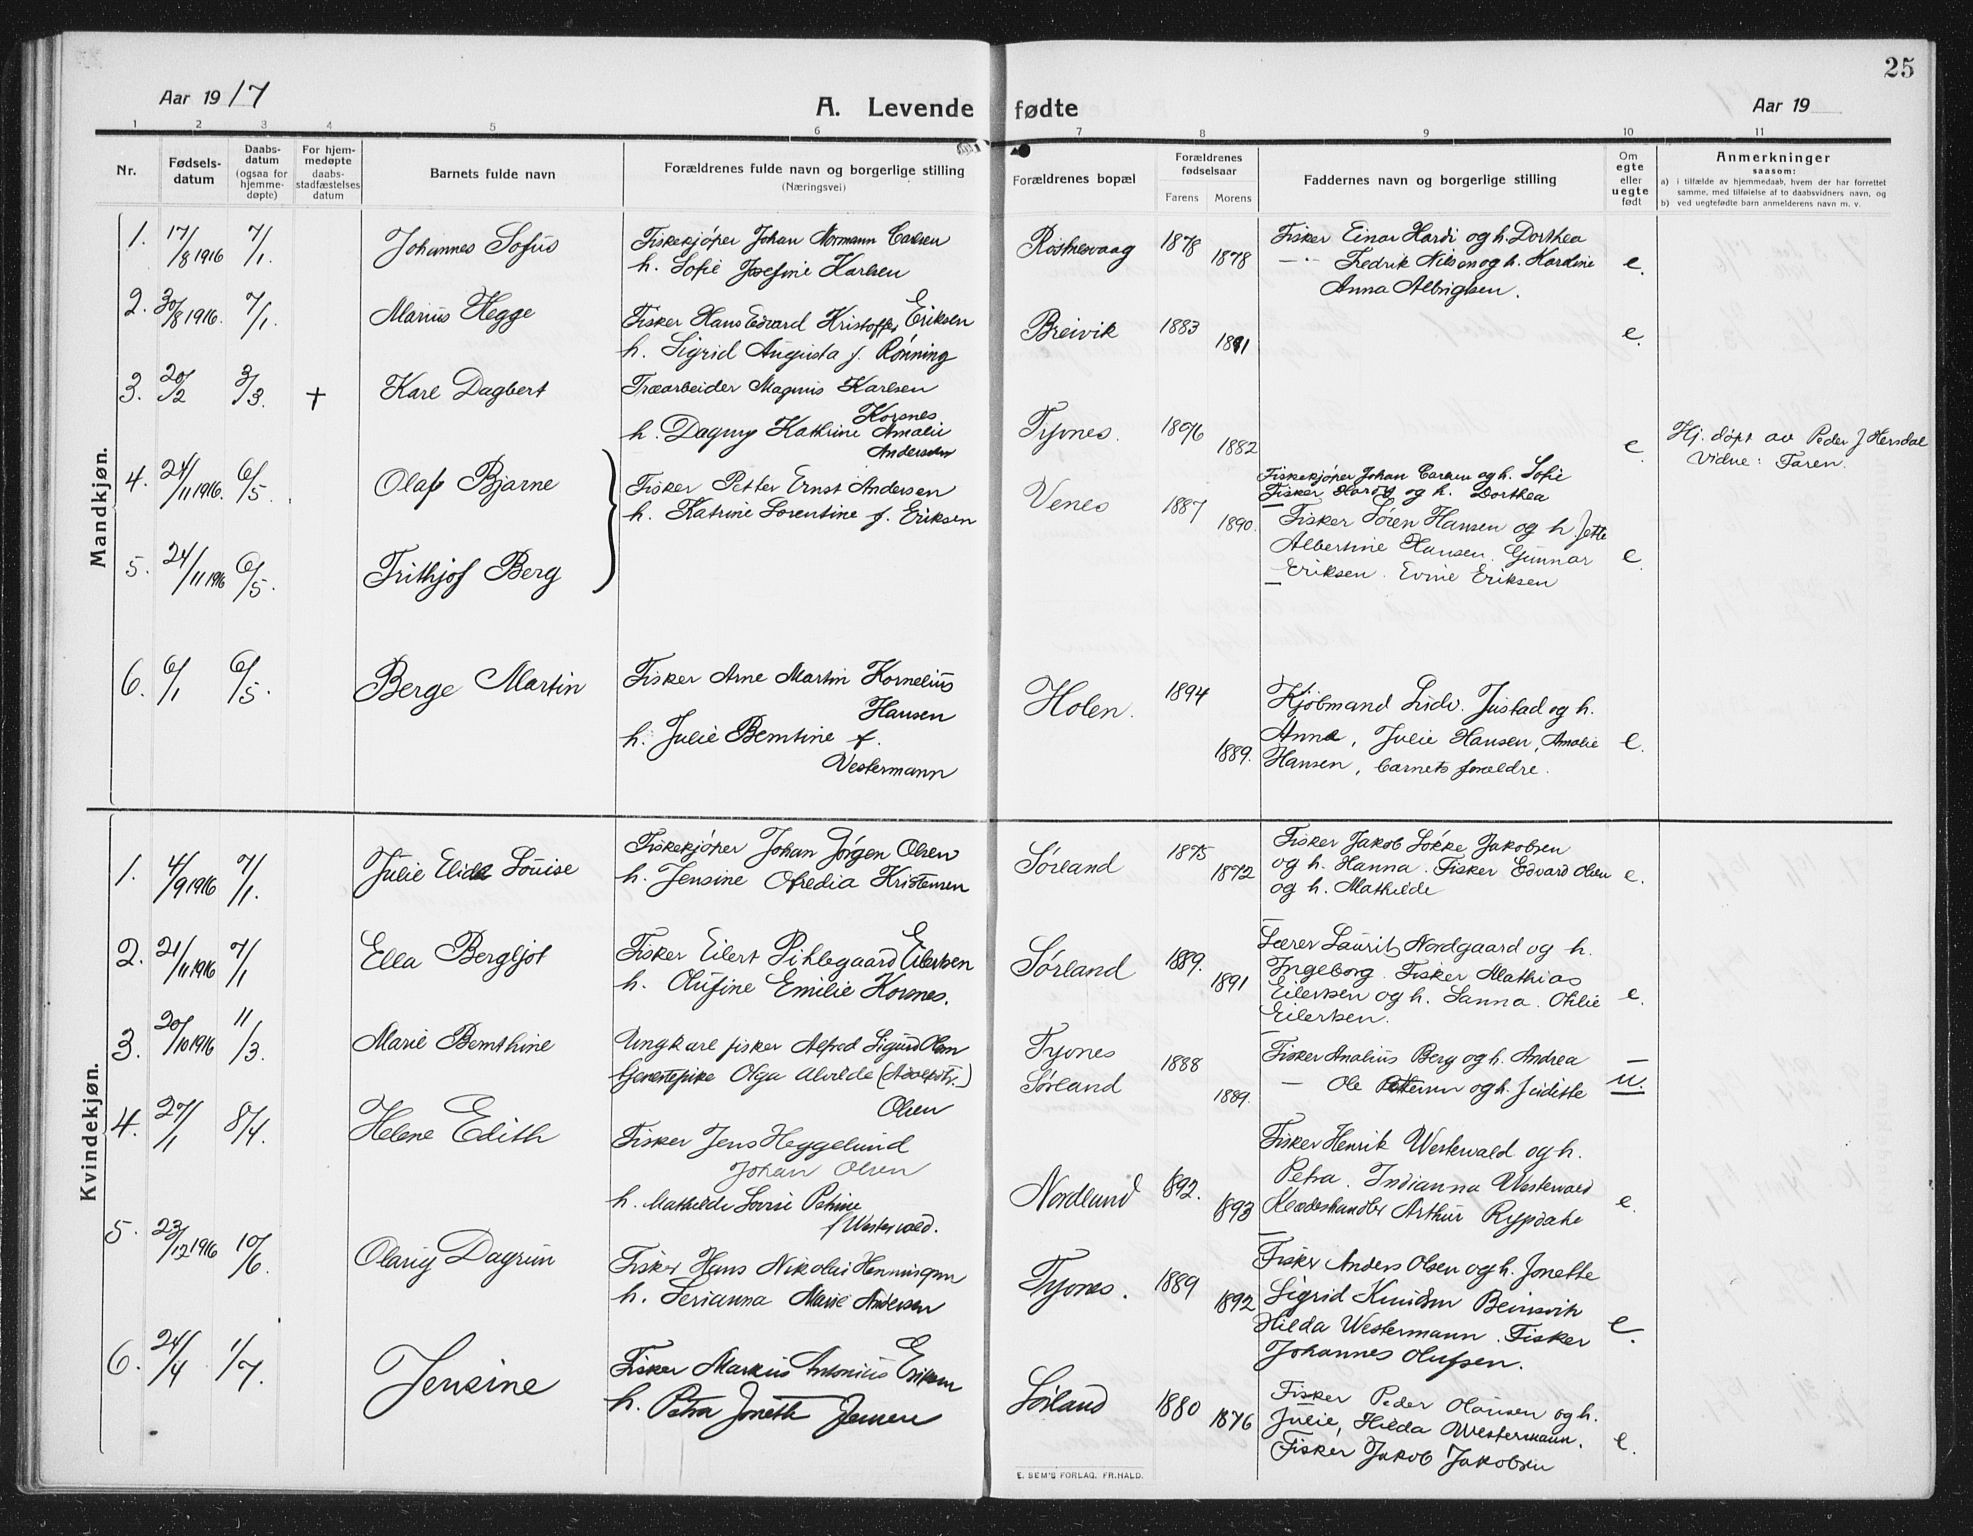 25
Aar 1917
A. Levende fødte
Aar 19
1 2 3 4 5 6 7 8 9 10 11
Nr.
Fødsels-
datum
Daabs-
datum
(ogsaa for
hjemme-
døpte)
For hjem-
medøpte
daabs-
stadfæstelses
datum
Barnets fulde navn
Forældrenes fulde navn og borgerlige stilling
(Næringsvei)
Forældrenes bopæl
Forældrenes
fødselsaar
Farens Morens
Faddernes navn og borgerlige stilling
Om
egte
eller
uegte
født
Anmerkninger
saasom:
a) i tilfælde av hjemmedaab, hvem der har forrettet
samme, med tilføielse af to daabsvidners navn, og
b) ved uegtefødte barn anmelderens navn m. v.
Mandkjøn.
1. 17/8 1916 7/1. Johannes Sofus
Fiskekjøper Johan Normann Carlsen
h. Sofie Josefine Karlsen
Røstnesvaag 1878 1878
Fisker Einar Hardi og h. Dorthea
— " — Fredrik Nilsen og h. Kardine
Anna Albrigtsen.
e.
2. 30/8 1916. 7/1. Marius Hegge
Fisker Hans Edvard Kristoffer Eriksen
h. Sigrid Augusta f. Rønning
Breivik 1883 1891
e.
3. 20/2 3/3. + Karl Dagbert
Træarbeider Magnus Karlsen
Korsnes
h. Dagny Kathrine Amalie
Andersen
Tyvnes. 1896 1882
e.
Hj. døpt av Peder J Hersdal
Vidne: Faren.
4. 24/11 1916. 6/5. Olaf Bjarne
Fisker Petter Ernst Andersen
h. Katrine Lorentine f. Eriksen
Venes 1887 1890.
Fiskekjøper Johan Carlsen og h. Sofie
Fisker Hardy og h. Dorthea
Fisker Søren Hansen og h. Jette
Albertine Hansen. Gunnar
Eriksen. Evine Eriksen
e.
5. 24/11 1916 6/5. Frithjof Berg
6. 6/1 6/5. Berge Martin
Fisker Arne Martin Kornelius
Hansen
h. Julie Berntine f.
Vestermann
Holen. 1894 1889.
Kjøbmand Ludv. Justad og h.
Anna, Julie Hansen, Amalie
Hansen, barnets forældre.
e.
Kvindekjøn.
1. 4/9 1916 7/1. Julie Elida Louise
Fiskekjøper Johan Jørgen Olsen
h. Jensine Ofredia Kristensen
Sørland 1875 1872
Fisker Jakob Løkke Jakobsen
og h. Hanna. Fisker Edvard Olsen
og h. Mathilde
e.
2. 21/11 1916 7/1 Ella Bergljot
Fisker Eilert Pihlegaard Eilertsen
h. Olufine Emilie Korsnes.
Sørland 1889. 1891
Lærer Laurits Nordgaard og h.
Ingeborg. Fisker Mathias
Eilertsen og h. Sanna. Otilie
Eilertsen.
e.
3. 20/10 1916 11/3. Marie Bernthine
Ungkarl fisker Alfred Sigurd Olsen
Genentepike Olga Alvilde (Adolfstr.)
Olsen
Tyvnes
Sørland
1888 1889.
Fisker Analius Berg og h. Andrea
— Ole Pettersen og h. Juditte
u.
4. 27/1 8/4. Helene Edith
Fisker Jens Heggelund
Johan Olsen
h. Mathilde Lovise Petrine
f Westervald.
Nordland 1892. 1893
Fisker Henrik Westervald og h.
Petra. Indianna Westervald
Klædeshandler Arthur Rypdahl
e.
5. 23/12 1916 10/6. Olarig Dagrun
Fisker Hans Nikolai Henningsen
h. Serianna Marie Andersen
Tyvnes. 1889 1892
Fisker Anders Olsen og h. Jonette
Sigrid Knudsen Beinsvik
Hilda Westermann. Fisker
Johannes Olufsen.
e.
6. 24/4 1/7. Jensine
Fisker Markus Antonius Eriksen
h. Petra Jonette Jensen
Sørland 1880 1876
Fisker Peder Hansen og h.
Julie, Hilda Westermann.
Fisker Jakob Jakobsen
e.
E. SEM'S FORLAG, FR.HALD.